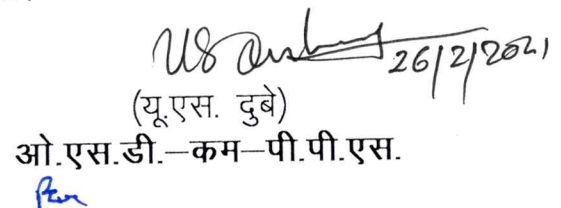 26/2/2021
(यू.एस. दुबे)
ओ.एस.डी.–कम–पी.पी.एस.